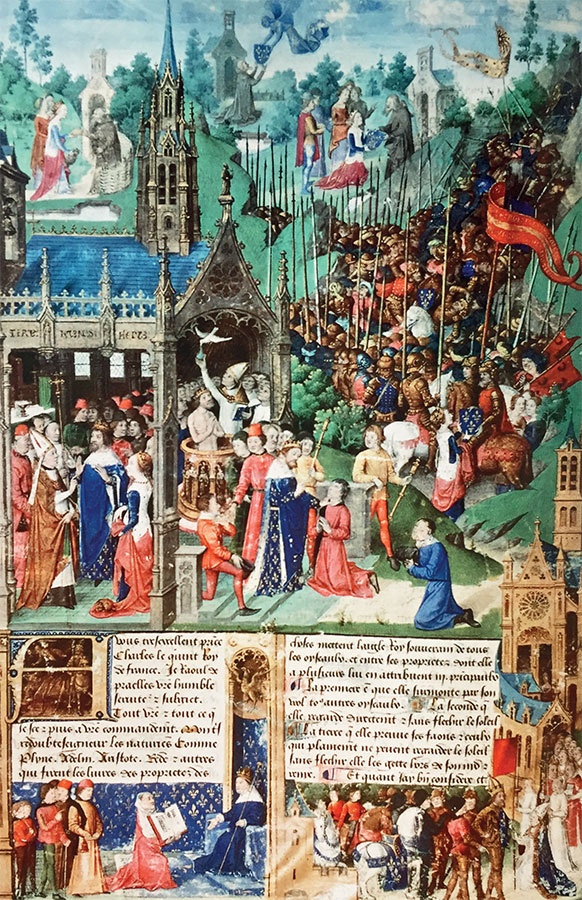 vous tresexcellent price
Charles le quint Roy
de france. Je Raoul de
praelles vre humble
serviter z subget
Tout vre z tout ce q
ie scez z puis a vre commandemt. Mon t
redoubte seigneur les natures Comme
Plyne. Adelm. Aristote. Bede z autres
qui firent les livres des proprietez des
choses mettent laigle Roy souverain de tous
les oyseaulx. et entre ses proprietez dont elle
a plusieurs luy en attribuent iij.
La premiere e que elle surmonte par son
vol autres oyseaulx. La seconde q
elle regarde z sans flechir le soleil
La tierce q elle preuve ses faons z ceulx
qui plainemt ne peuent regarder le soleil
sans flechir elle les gette hors de son nid z
Et quant Jay considere et